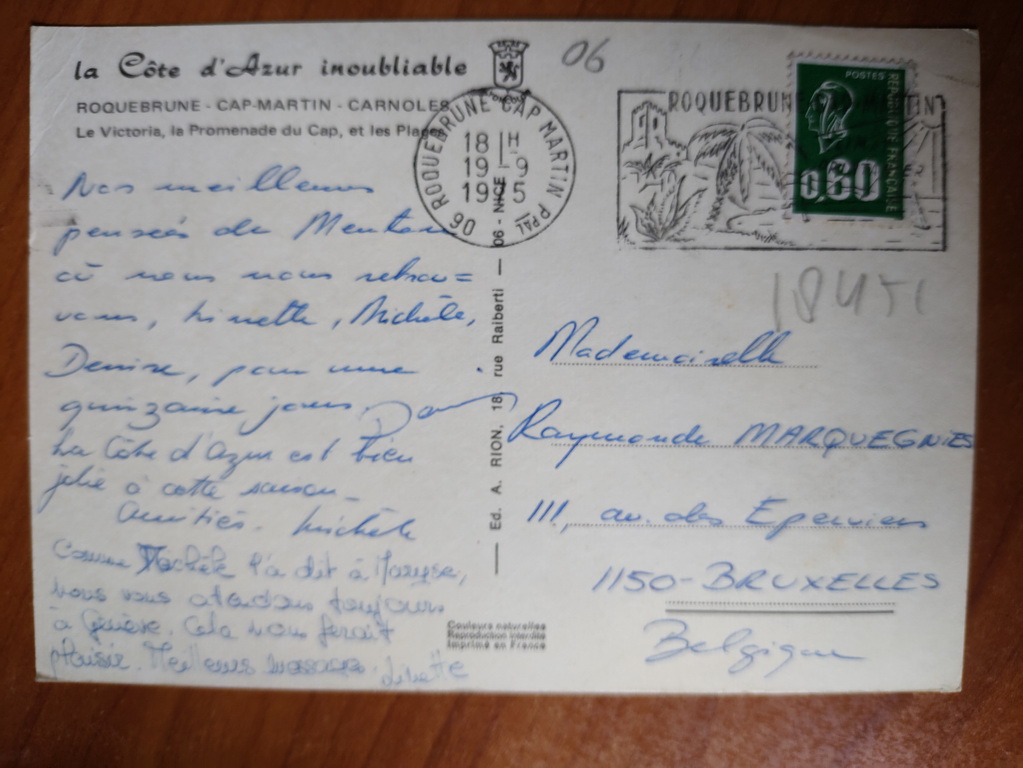 la Côte d'Azur inoubliable
ROQUEBRUNE - CAP-MARTIN - CARNOLES
Le Victoria, la Promenade du Cap, et les Plages
06
06 ROQUEBRUNE CAP MARTIN PPAL
18 H
19 -9
19 5
ROQUEBRUN MARTIN
POSTES
REPUBLIQUE FRANCAISE
0,60
Nos meilleures
pensées de Menton
où nous nous retrou=
vons, Linette, Michèle,
Denise, pour une
quinzaine jours.
La Côte d'Azur est bien
jolie à cette saison_
Amitiés. Michèle
Comme Michèle l'a dit à Maryse,
nous vous attendons toujours
à Genève. Cela nous ferait
plaisir. Meilleurs Linette
Ed. A. RION, 18, rue Raiberti - 06 - NICE
Couleurs naturelles
Reproduction interdite
Imprimé en France
18451
Mademoiselle
Raymonde MARQUEGNIES
111, av. des Eperviers
1150-BRUXELLES
Belgique